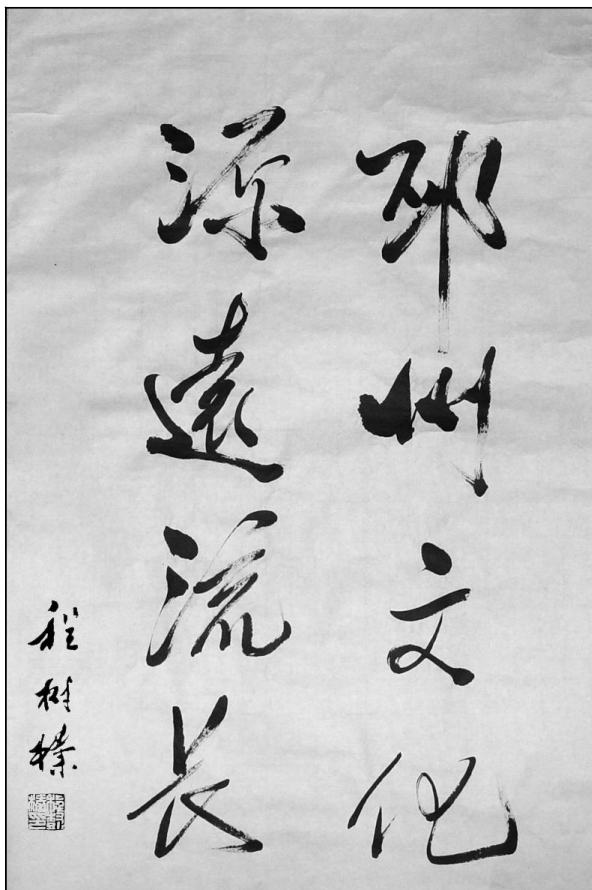 邳州文化
源遠流长
程树榛